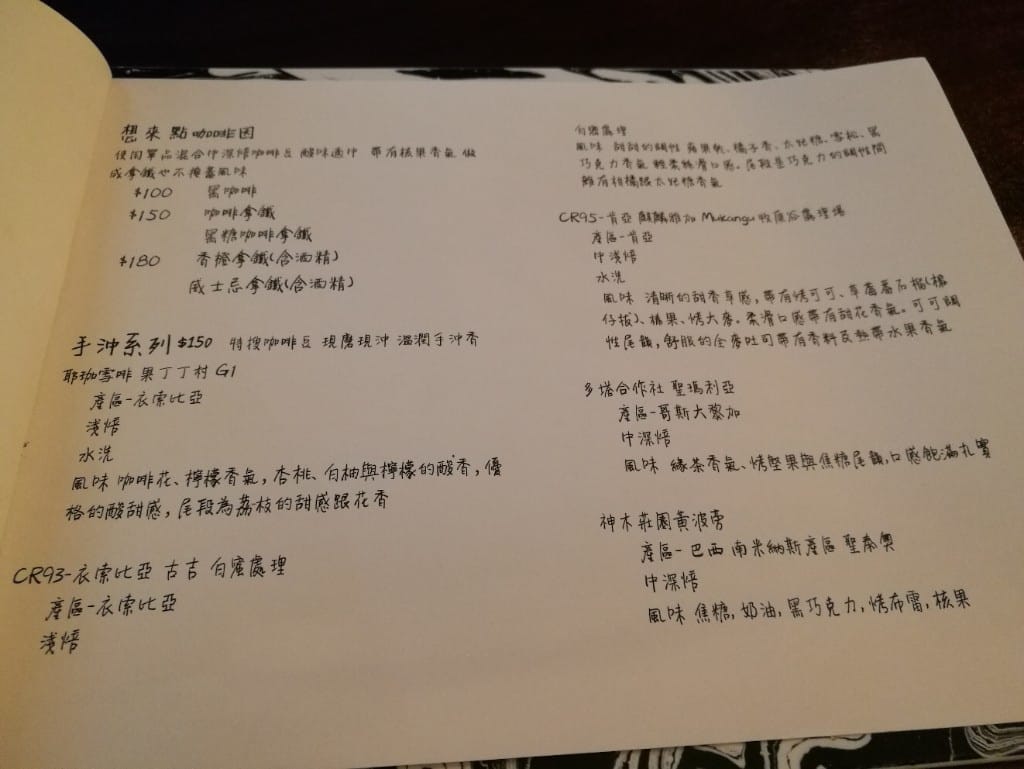 想來點咖啡因
使用單品混合中深焙咖啡豆 酸味適中 帶有核果香氣 做
成拿鐵也不掩蓋風味
$100 黑咖啡
$150 咖啡拿鐵
黑糖咖啡拿鐵
$180 香橙拿鐵(含酒精)
威士忌拿鐵(含酒精)
手沖系列 $150 特搜咖啡豆 現磨現沖 溫潤手沖香
耶珈雪啡 果丁丁村 G1
產區-衣索比亞
淺焙
水洗
風味 咖啡花、檸檬香氣,杏桃、白柚與檸檬的酸香,優
格的酸甜感,尾段為荔枝的甜感跟花香
CR93-衣索比亞 古吉 白蜜處理
產區-衣索比亞
淺焙
白蜜處理
風味 甜甜的鹹性 蘋果軌、橘子香、太妃糖、雪松、黑
巧克力香氣 輕柔絲滑口感。尾段是巧克力的鹹性間
雜有柑橘跟太妃糖香氣
CR95-肯亞 麒麟雅加 Mukangu 處理場
產區-肯亞
中淺焙
水洗
風味 清晰的甜香草感,帶有烤可可、草莓番石榴(檬
仔拔)、榛果、烤大麥。柔滑口感帶有甜花香氣。可可調
性尾韻,舒服的全麥吐司帶有香料及熱帶水果香氣
多塔合作社 聖瑪利亞
產區-哥斯大黎加
中深焙
風味 綠茶香氣、烤堅果與焦糖尾韻,口感飽滿扎實
神木莊園黃波旁
產區-巴西 南米納斯產區 聖泰奧
中深焙
風味 焦糖,奶油,黑巧克力,烤布雷,核果